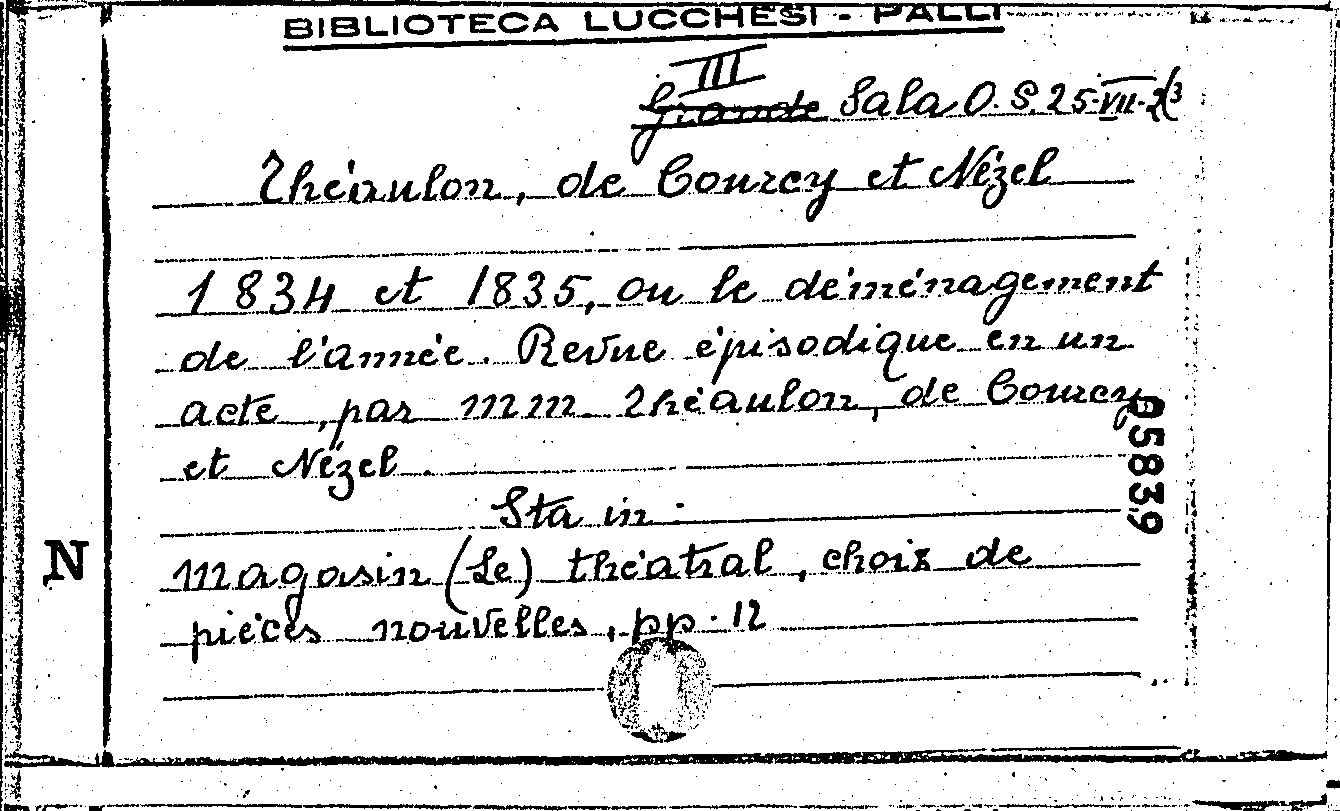 BIBLIOTECA LUCCHESI - PALLI
III
Grande Sala O.S. 25-VII-2(3
Théaulon, de Courcy et Nézel
1834 et 1835, ou le déménagement
de l'année. Revue épisodique en un
acte, par MM. Théaulon, de Courcy
et Nézel.
95839
Sta in:
N
Magasin (Le) théatral, choix de
pièces nouvelles, pp. 12